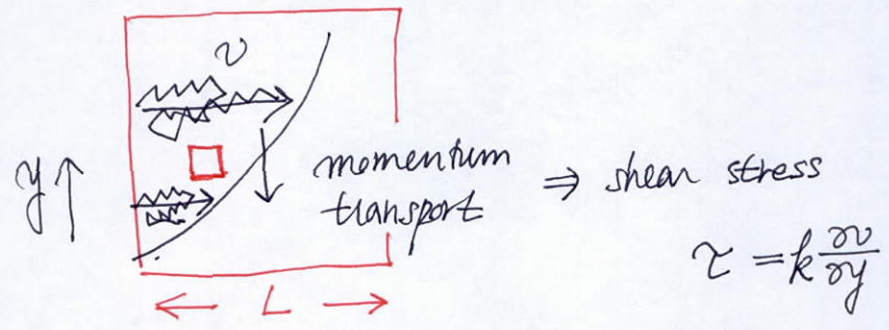 v
y ↑
momentum
transport
⇒ shear stress
τ = k ∂v/∂y
← L →